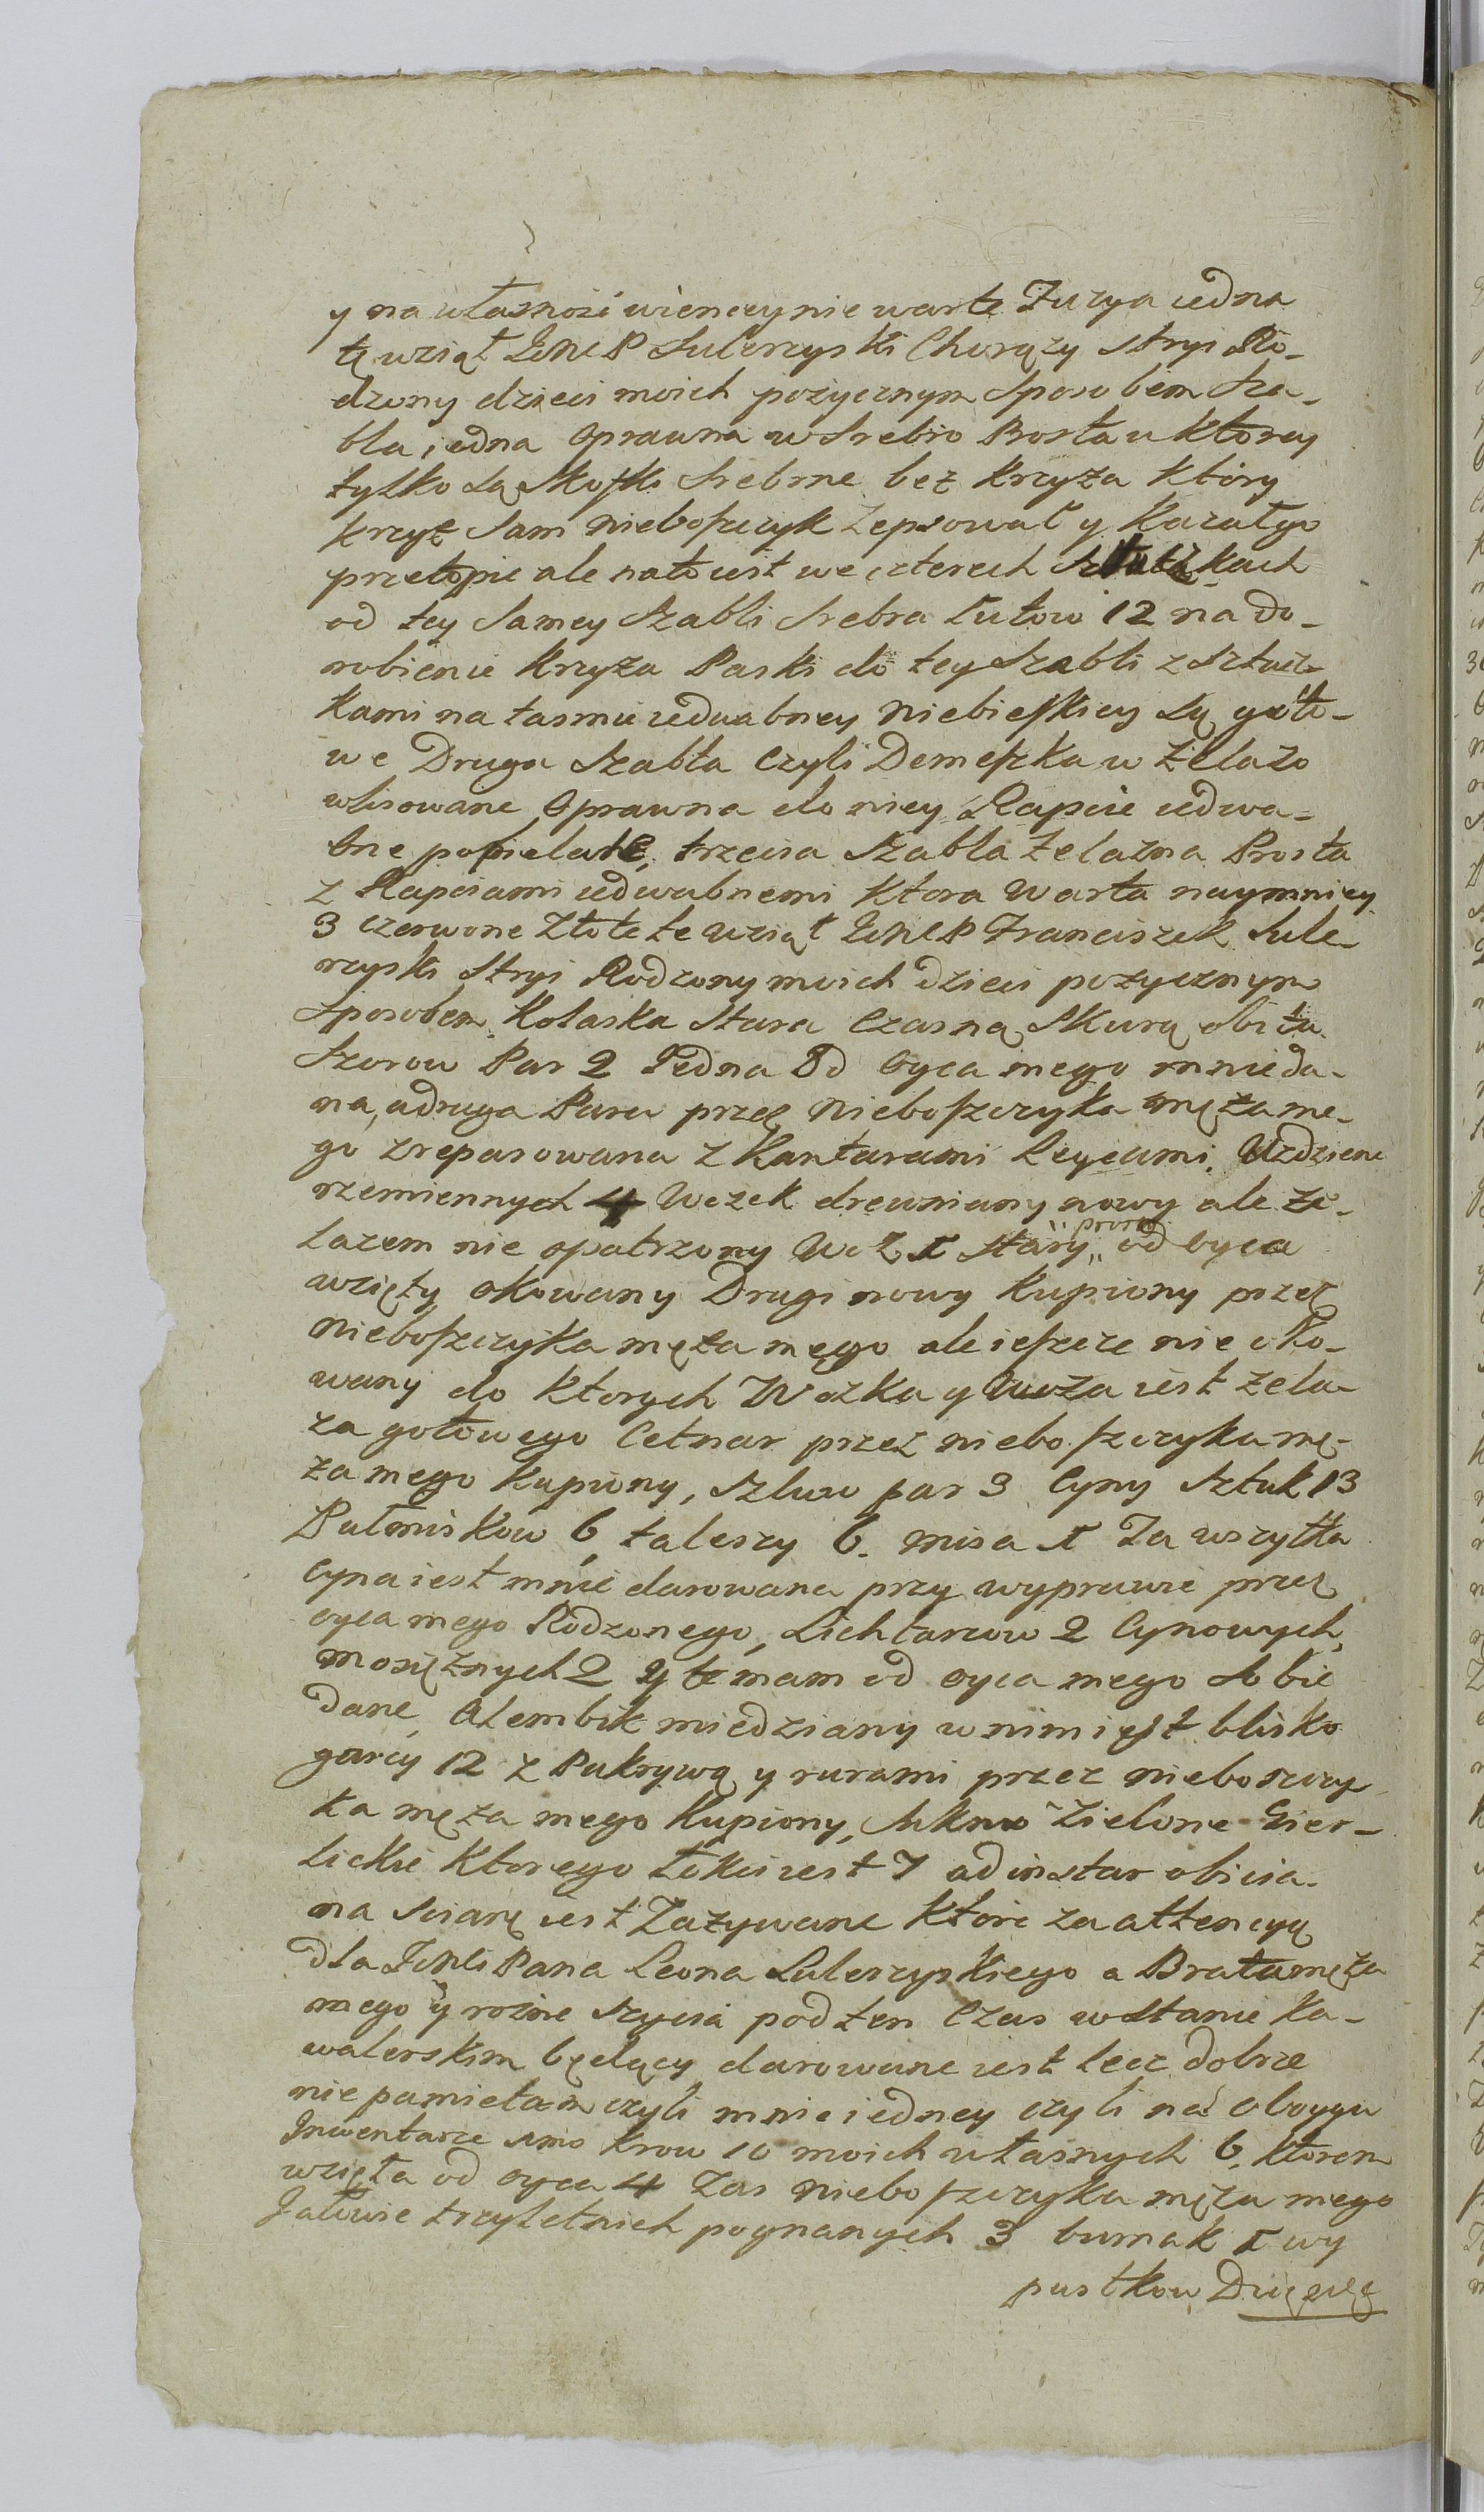 y na własność wiencey nie warte Fuzya iedna
tę wziął JchMP Sulerzyski Chorąży Stryi Ro-
dzony dzieci moich pożycznym Sposobem Sza-
bla iedna Oprawna w Srebro Prosta u Ktorey
tylko są Skofki Srebrne bez krzyża który
krzyż Sam nieboszczyk Zepsował y Kazał go
przetopic ale na to iest we czterech Sztuczkach
od tey Samey Szabli Srebra Łutow 12 na do-
robienie Krzyża Paski do tey Szabli z Sztucz-
kami na tasmie iedwabney Niebieskiey Są goto-
we Druga Szabla Czyli Demeszka w żelazo
wlisowane Oprawna do niey Rapcie iedwa-
bne popielate, trzecia Szabla żelazna Prosta
z Rapciami iedwabnemi Ktora Warta naymniey
3 czerwone Złote te wziął JchMP Franciszek Sule-
rzyski Stryi Rodzony moich dzieci pożycznym
Sposobem Kolaska Stara Czarną Skurą obita
Szorow Par 2 Jedna Od Oyca mego mnie da-
na, a druga Para przez Nieboszczyka męża me-
go zreparowana z Kantarami Leycami, Uzdzienic
rzemiennych 4 Wozek drewniany nowy ale że-
lazem nie opatrzony Woz 1 Stary „prosty„ od Oyca
wzięty okowany Drugi nowy Kupiony przez
Nieboszczyka męża mego ale ieszcze nie oko-
wany do Ktorych Wozka y Woza iest żela-
za gotowego Cetnar przez nieboszczyka mę-
ża mego Kupiony, Szluw par 3 Cyny Sztuk 13
Pułmiskow 6, talerzy 6. misa 1 Ta wszytka
Cyna iest mnie darowana przy wyprawie przez
oyca mego Rodzonego, Lichtarzow 2 Cynowych,
mosiężnych 2 y te mam od oyca mego Sobie
dane, Alembik miedziany w nim iest blisko
garcy 12 z Pukrywą y rurami przez nieboszczy
ka męża mego Kupiony, Sukno Zielone Gier-
lickie Ktorego Łokci iest 7 ad instar obicia
na scianę iest Zażywane Które za attencyą
dla JchMci Pana Leona Sulerzyskiego a Brata męża
mego y rożne Szycia pod ten Czas w Stanie Ka-
walerskim będący darowane iest lecz dobrze
nie pamietam czyli mnie iedney czyli na Oboygu
Inwentarze imo Krow 10 moich własnych 6, Ktorem
wzięła od oyca 4 Zas nieboszczyka męża mego
Jałowie trzyletnich pognanych 3 burnak 1 wy
pustkow Dwieście